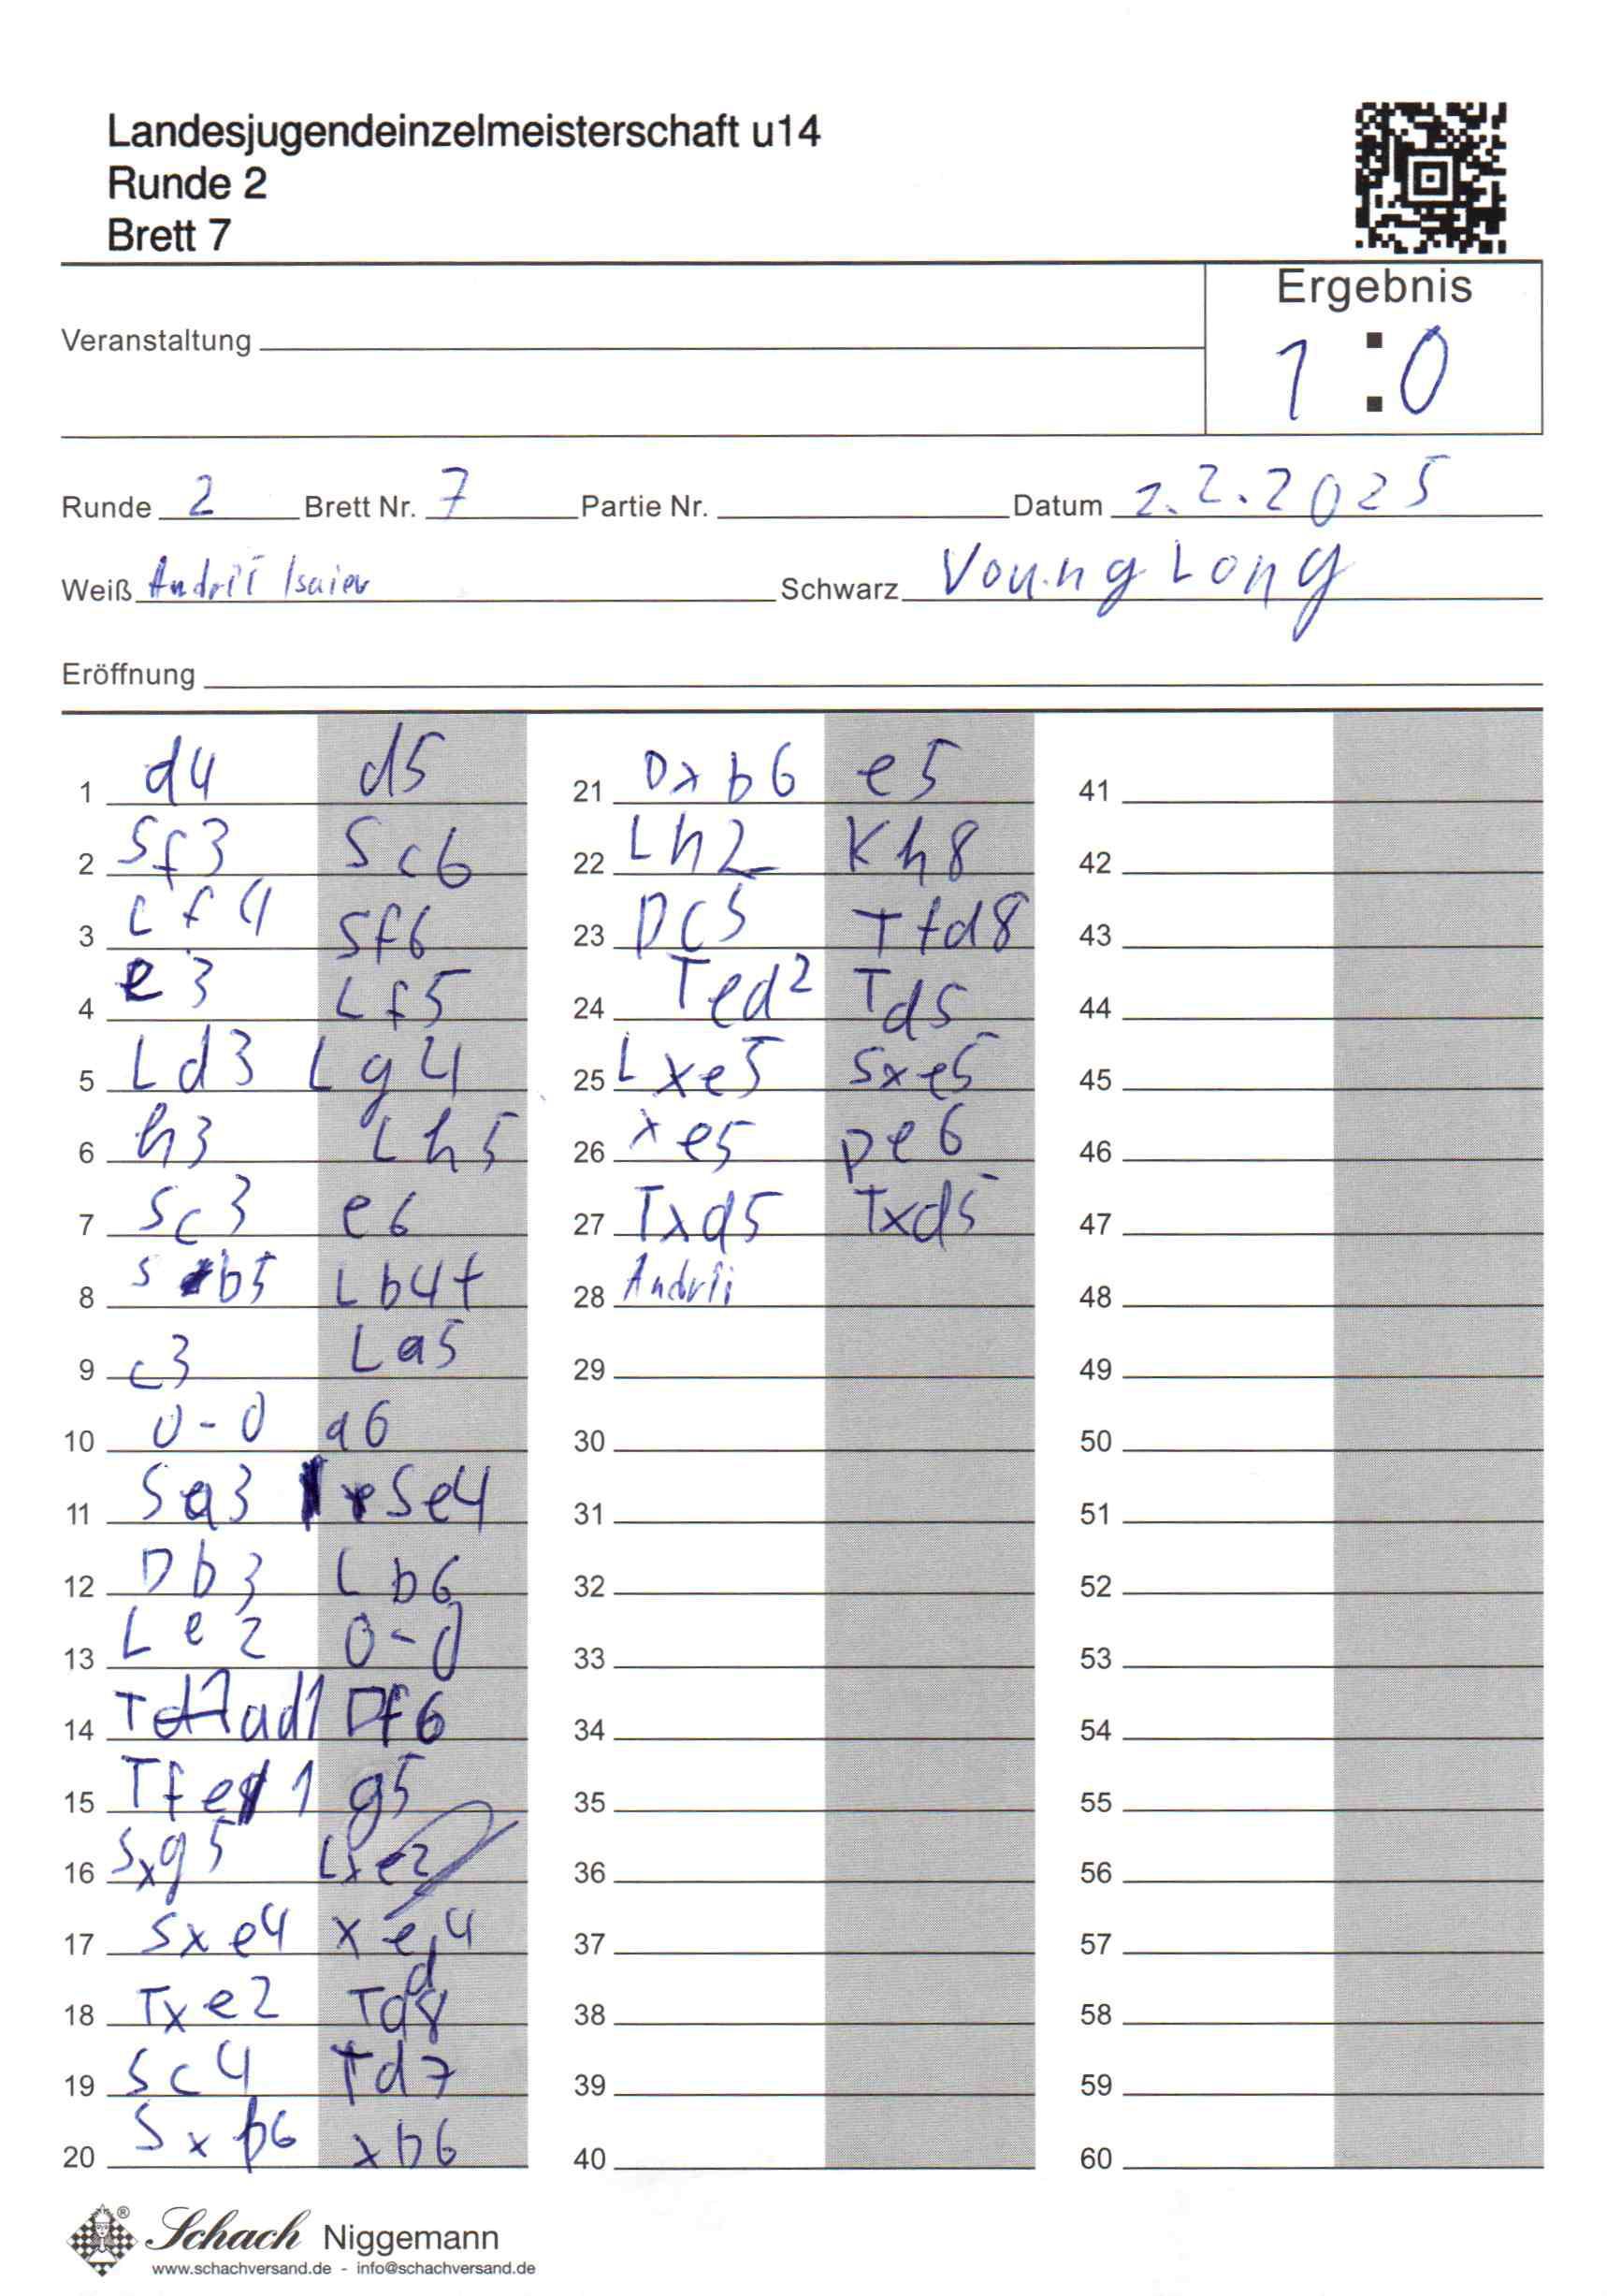 Landesjugendeinzelmeisterschaft u14
Runde 2
Brett 7
Ergebnis
1 : 0
Veranstaltung
Runde 2 Brett Nr. 7 Partie Nr. Datum 2.2.2025
Weiß Andrii Isaiev Schwarz Voung Long
Eröffnung
1 d4 d5
2 Sf3 Sc6
3 Lf4 Sf6
4 e3 Lf5
5 Ld3 Lg4
6 h3 Lh5
7 Sc3 e6
8 Sb5 Lb4+
9 c3 La5
10 0-0 a6
11 Sa3 Se4
12 Db3 Lb6
13 Le2 0-0
14 Tad1 Df6
15 Tfe1 g5
16 Sxg5 Lxe2
17 Sxe4 xe4
18 Txe2 Td8
19 Sc4 Td7
20 Sxb6 xb6
21 Dxb6 e5
22 Lh2 Kh8
23 Dc5 Tfd8
24 Ted2 Td5
25 Lxe5 Sxe5
26 xe5 De6
27 Txd5 Txd5
28 Andrii
29
30
31
32
33
34
35
36
37
38
39
40
41
42
43
44
45
46
47
48
49
50
51
52
53
54
55
56
57
58
59
60
Schach Niggemann
www.schachversand.de - info@schachversand.de